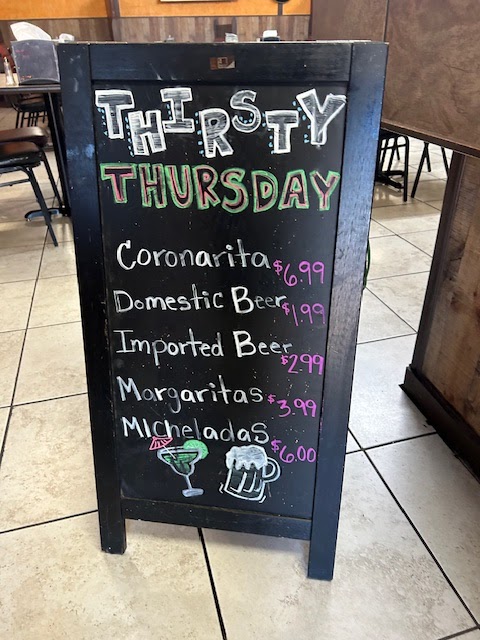 THIRSTY
THURSDAY
Coronarita $6.99
Domestic Beer $1.99
Imported Beer $2.99
Margaritas $3.99
MIcheladas $6.00